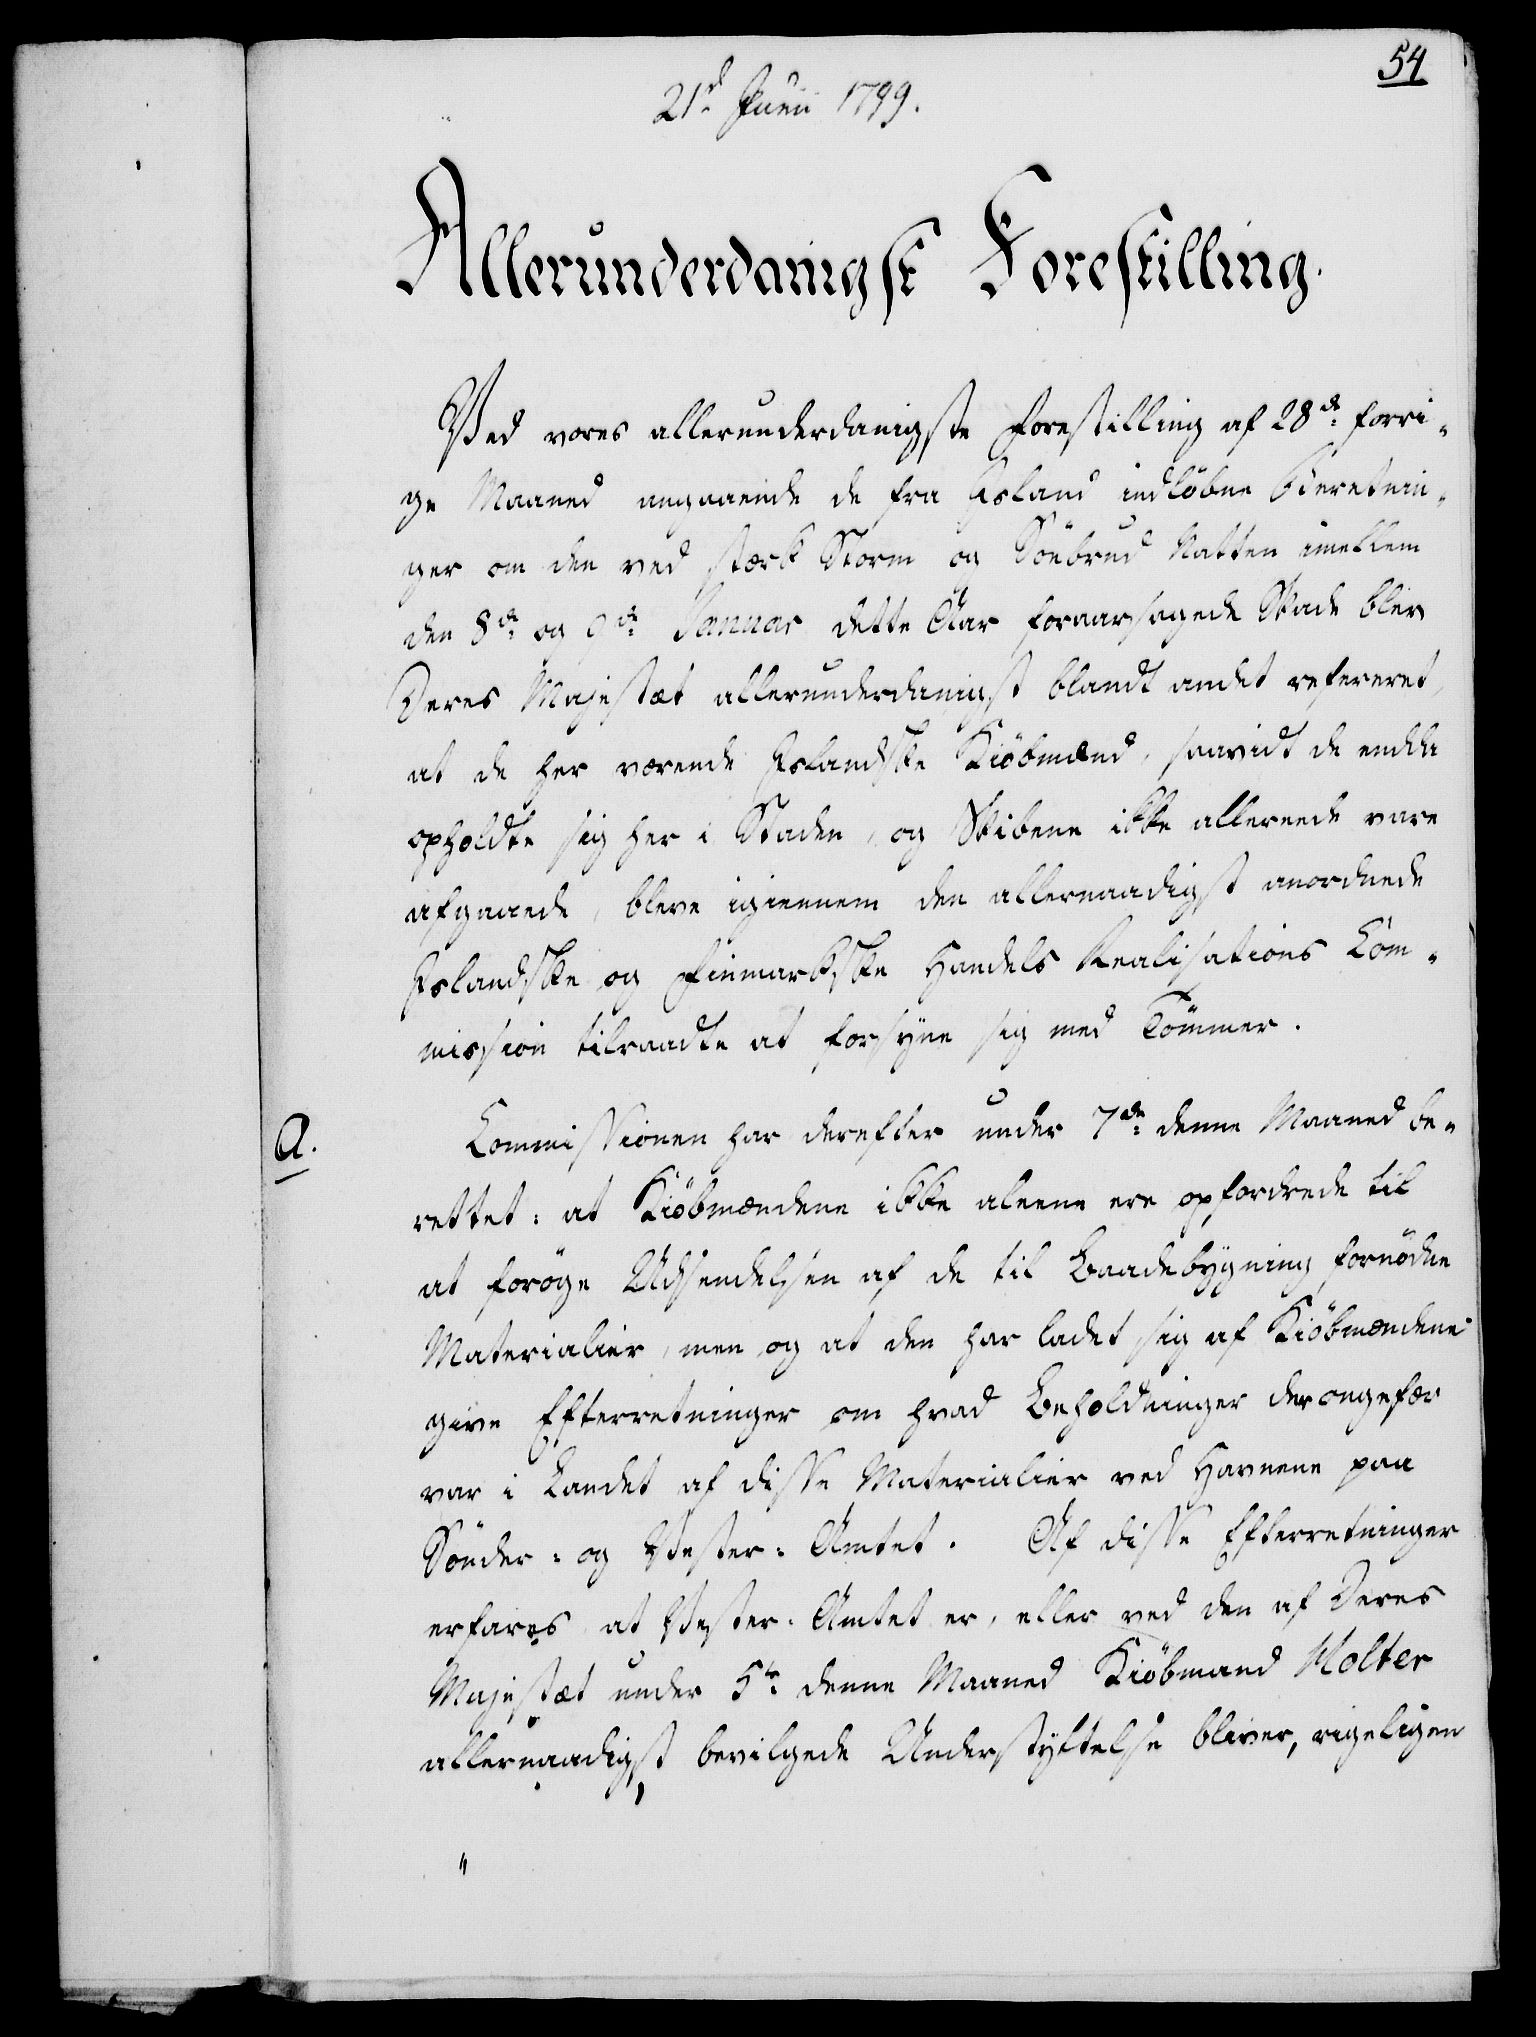 54
21d Junii 1799.
Allerunderdanigst Forestilling.
Ved vores allerunderdanigste Forestilling af 28de forri-
ge Maaned angaaende de fra Island indløbne Bieretnin-
ger om den ved stærk Storm og Söebrud Natten imellem
den 8de og 9de Januar dette Aar foraarsagede Skade blev
Deres Majestæt allerunderdanigst blandt andet refereret,
at de her værende Islandske Kiöbmænd, saavidt de endda
opholdte sig her i Staden, og Skibene ikke allereede vare
afgaaede, bleve igiennem den allernaadigst anordnede
Islandske og Finmarkske Handels Realisations Com-
mission tilraadte at forsÿne sig med Tömmer.
A.
Commissionen har derefter under 7de denne Maaned be-
rettet: at Kiöbmændene ikke aleene ere opfordrede til
at foröge Udsendelsen af de til Baadebygning fornödne
Materialier, men og at den har ladet sig af Kiöbmændene
give Efterretninger om hvad Beholdninger der ongefær
var i Landet af disse Materialier ved Havnene paa
Sönder- og Vester-Amtet. Af disse Efterretninger
erfares at Vester-Amtet er, eller ved den af Deres
Majestæt under 5te denne Maaned Kiöbmand Holter
allernaadigst bevilgede Understyttelse bliver, rigeligen